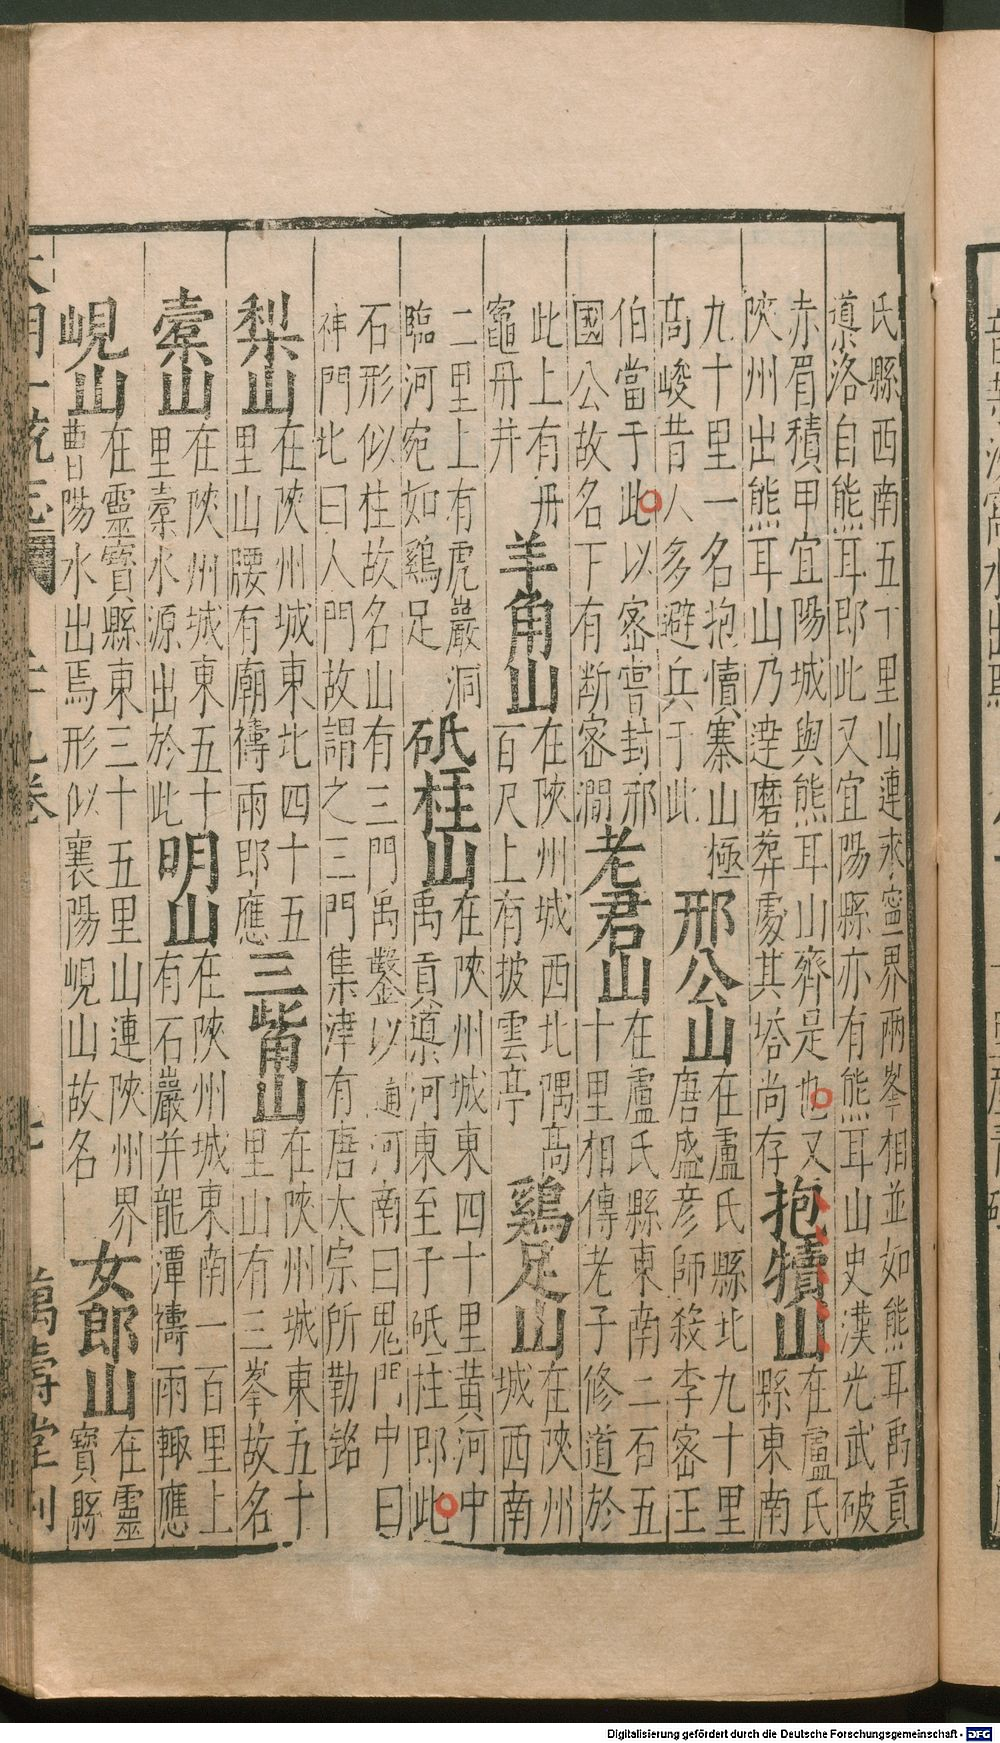 氏縣西南五十里山連永寧界兩峯相並如熊耳禹貢
導洛自熊耳即此又宜陽縣亦有熊耳山史漢光武破
赤眉積甲宜陽城與熊耳山齊是也又
陝州出熊耳山乃達磨葬處其塔尚存
抱犢山
在盧氏
縣東南
九十里一名抱犢寨山極
高峻昔人多避兵于此
邢公山
在盧氏縣北九十里
唐盛彥師殺李密王
伯當于此以密嘗封邢
國公故名下有斷密澗
老君山
在盧氏縣東南二石五
十里相傳老子修道於
此上有丹
竈丹井
羊角山
在陝州城西北隅高
百尺上有披雲亭
鷄足山
在陝州
城西南
二里上有虎巖洞
臨河宛如鷄足
砥柱山
在陝州城東四十里黃河中
禹貢導河東至于砥柱即此
石形似柱故名山有三門禹鑿以通河南曰鬼門中曰
神門北曰人門故謂之三門集津有唐太宗所勒銘
梨山
在陝州城東北四十五
里山腰有廟禱雨即應
三觜山
在陝州城東五十
里山有三峯故名
橐山
在陝州城東五十
里橐水源出於此
明山
在陝州城東南一百里上
有石巖并龍潭禱雨輒應
峴山
在靈寶縣東三十五里山連陝州界
曹陽水出焉形似襄陽峴山故名
女郎山
在靈
寶縣
大明一統志 二十九卷 萬壽堂刊
Digitalisierung gefördert durch die Deutsche Forschungsgemeinschaft - DFG